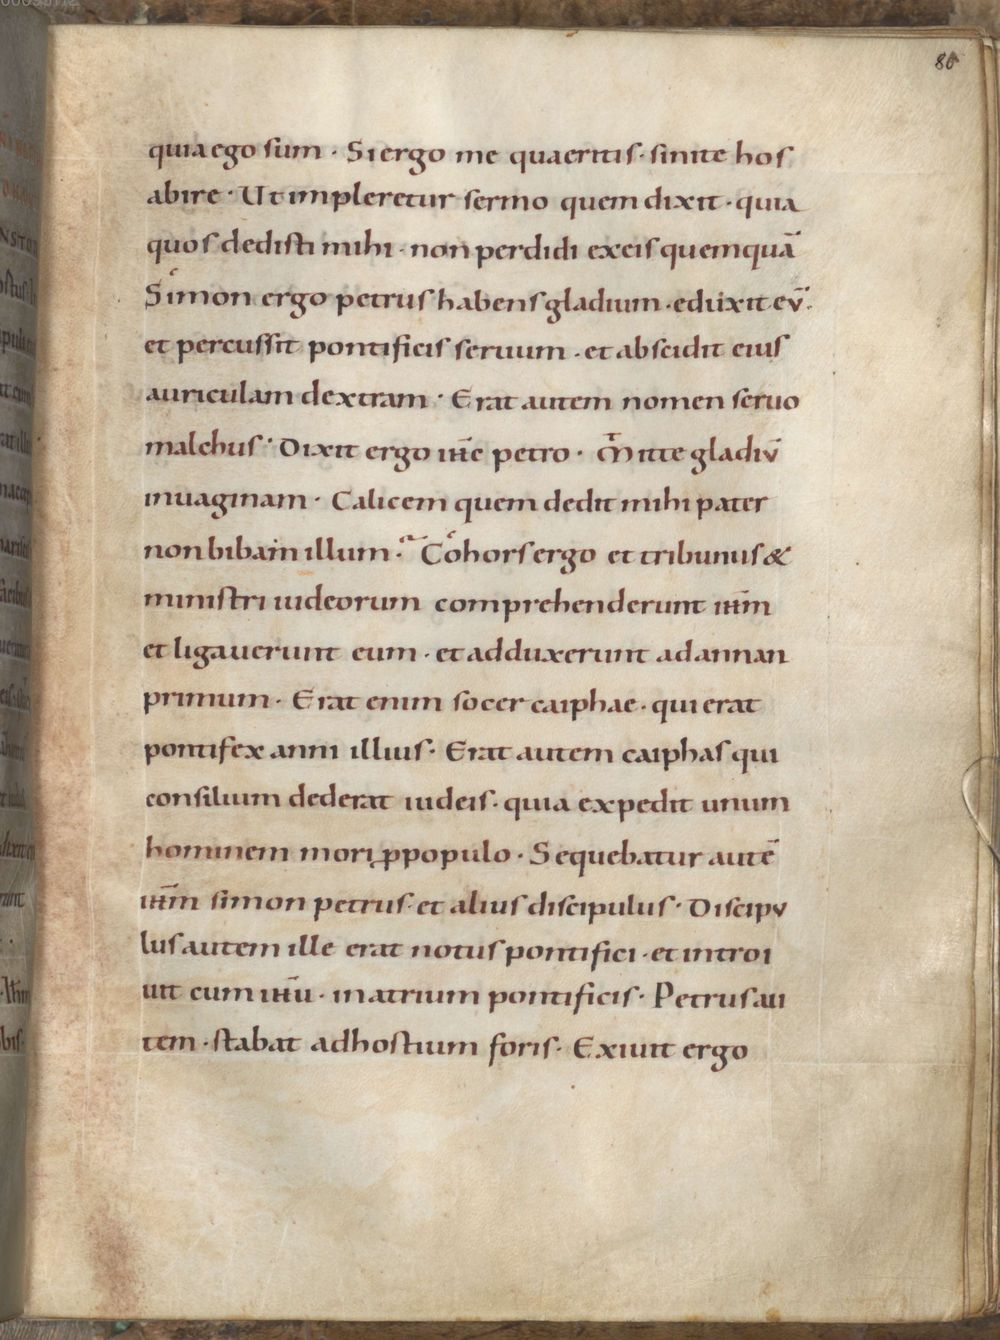 86
quia ego sum · Si ergo me quaeritis · sinite hos
abire · Ut impleretur sermo quem dixit · quia
quos dedisti mihi · non perdidi ex eis quemquā
Simon ergo petrus habens gladium · eduxit eū ·
et percussit pontificis seruum · et abscidit eius
auriculam dextram · Erat autem nomen seruo
malchus · Dixit ergo ih̅c petro · Mitte gladiū
in uaginam · Calicem quem dedit mihi pater
non bibam illum · Cohors ergo et tribunus &
ministri iudeorum comprehenderunt ih̅m
et ligauerunt eum · et adduxerunt ad annan
primum · Erat enim socer caiphae · qui erat
pontifex anni illius · Erat autem caiphas qui
consilium dederat iudeis · quia expedit unum
hominem mori ꝓ populo · Sequebatur autē
ih̅m simon petrus · et alius discipulus · Discipu
lus autem ille erat notus pontifici · et introi
uit cum ih̅u · in atrium pontificis · Petrus au
tem · stabat ad hostium foris · Exiuit ergo